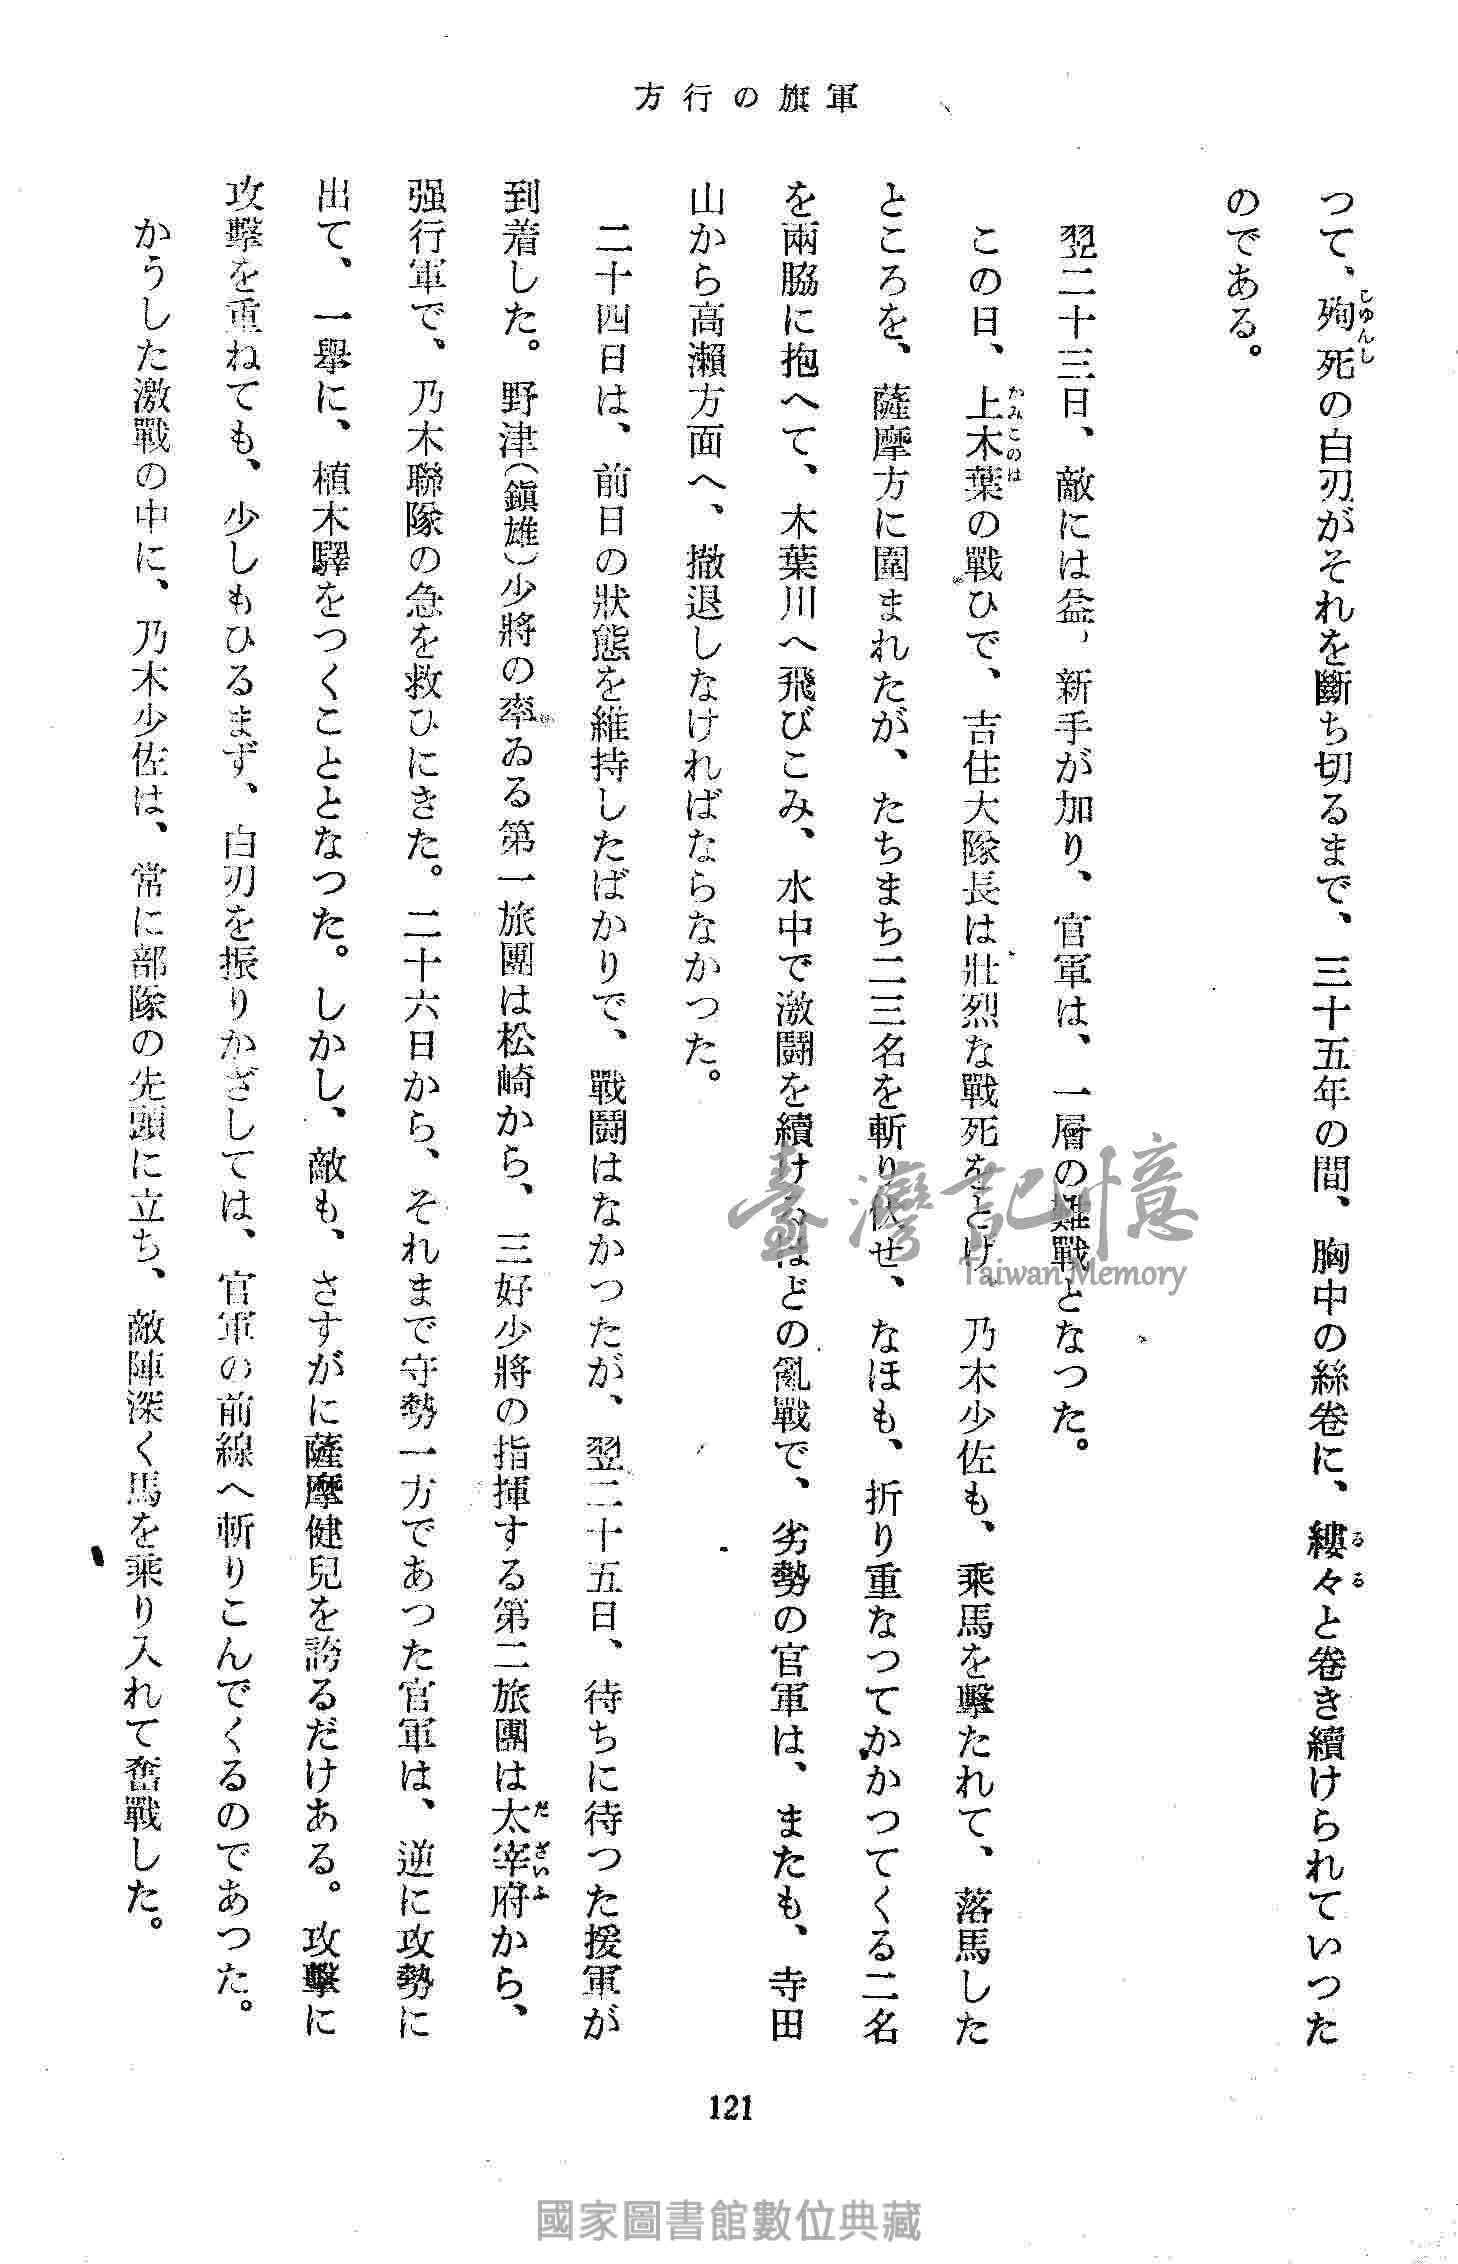 軍旗の行方
つて、殉死の白刃がそれを斷ち切るまで、三十五年の間、胸中の絲卷に、縷々と卷き續けられていつた
のである。
翌二十三日、敵には益〻新手が加り、官軍は、一層の難戰となつた。
この日、上木葉の戰ひで、吉住大隊長は壯烈な戰死をとげ、乃木少佐も、乘馬を擊たれて、落馬した
ところを、薩摩方に圍まれたが、たちまち二三名を斬り伏せ、なほも、折り重なつてかかつてくる二名
を兩脇に抱へて、木葉川へ飛びこみ、水中で激鬪を續けるほどの亂戰で、劣勢の官軍は、またも、寺田
山から高瀨方面へ、撤退しなければならなかつた。
二十四日は、前日の狀態を維持したばかりで、戰鬪はなかつたが、翌二十五日、待ちに待つた援軍が
到着した。野津(鎭雄)少將の率ゐる第一旅團は松崎から、三好少將の指揮する第二旅團は太宰府から、
强行軍で、乃木聯隊の急を救ひにきた。二十六日から、それまで守勢一方であつた官軍は、逆に攻勢に
出て、一擧に、植木驛をつくこととなつた。しかし、敵も、さすがに薩摩健兒を誇るだけある。攻擊に
攻擊を重ねても、少しもひるまず、白刃を振りかざしては、官軍の前線へ斬りこんでくるのであつた。
かうした激戰の中に、乃木少佐は、常に部隊の先頭に立ち、敵陣深く馬を乘り入れて奮戰した。
121
臺灣記憶
Taiwan Memory
國家圖書館數位典藏